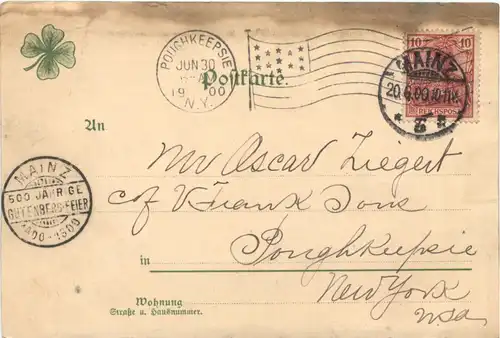 POUGHKEEPSIE
JUN 30
19 00
N.Y.
Postkarte.
10 10
REICHSPOST
MAINZ
20.6.00.10-11N.
* 3 *
An
Mr Oscar Ziegert
c/o V. Frank Sons
MAINZ
500 JÄHRIGE
GUTENBERG-FEIER
1400-1900
Poughkeepsie
in
New York
Wohnung
Straße u. Hausnummer.
USA